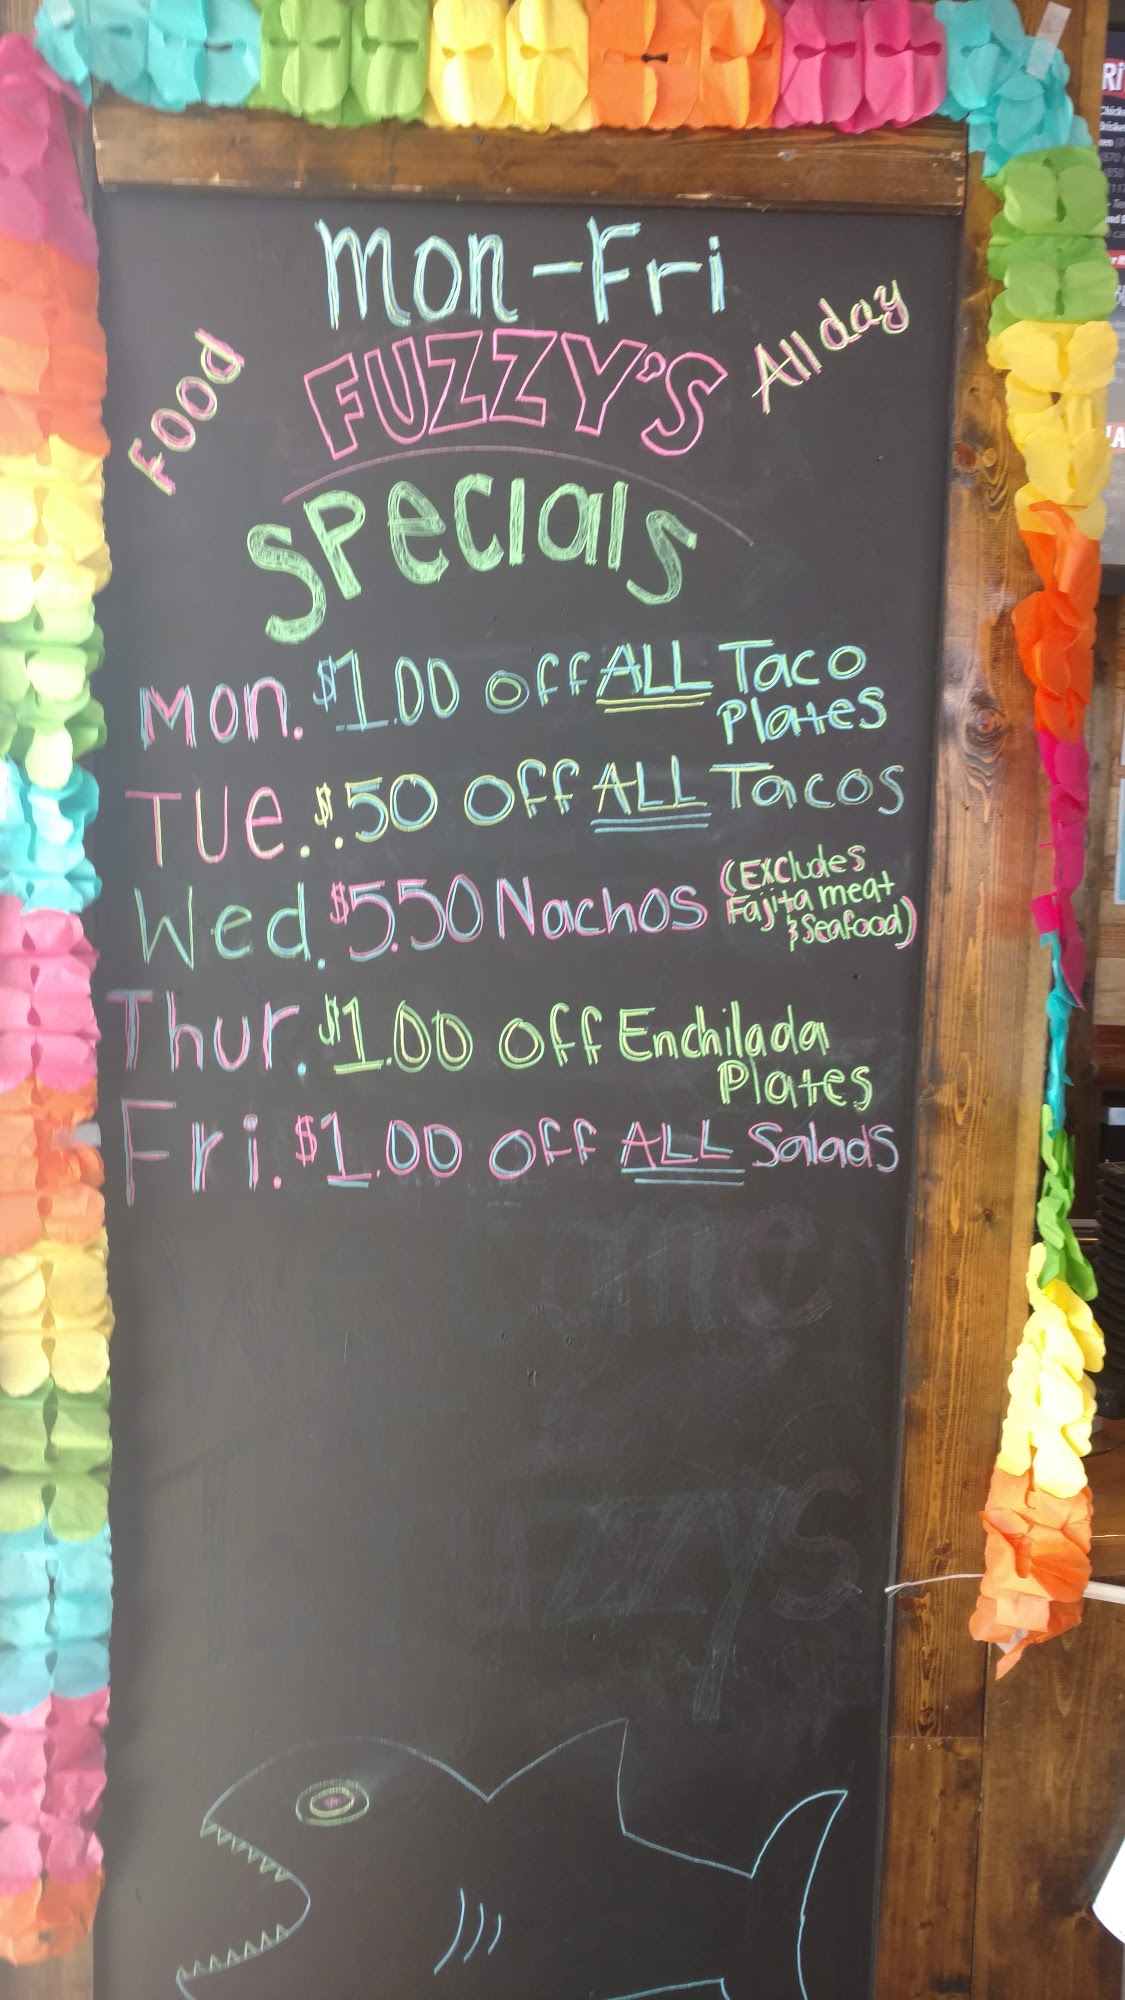 Mon-Fri
Food FUZZY'S All day
Specials
Mon. $1.00 off ALL Taco
Plates
Tue. $.50 Off ALL Tacos
Wed. $5.50 Nachos (Excludes
Fajita meat
& Seafood)
Thur. $1.00 Off Enchilada
Plates
Fri. $1.00 Off ALL Salads